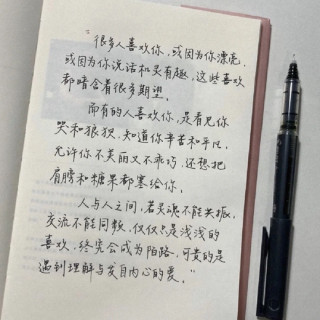 “很多人喜欢你,或因为你漂亮,
或因为你说话机灵有趣,这些喜欢
都暗含着很多期望。
而有的人喜欢你,是看见你
哭和狼狈,知道你辛苦和平凡,
允许你不美丽又不乖巧,还想把
肩膀和糖果都塞给你。
人与人之间,若灵魂不能共振,
交流不能同频,仅仅只是浅浅的
喜欢,终究会成为陌路,可贵的是
遇到理解与发自内心的爱。”